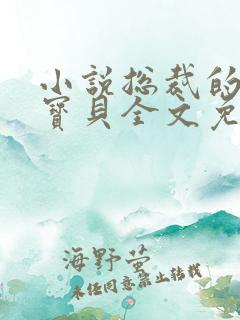 小说总裁的
宝贝全文免
海野萤
未经同意禁止转载